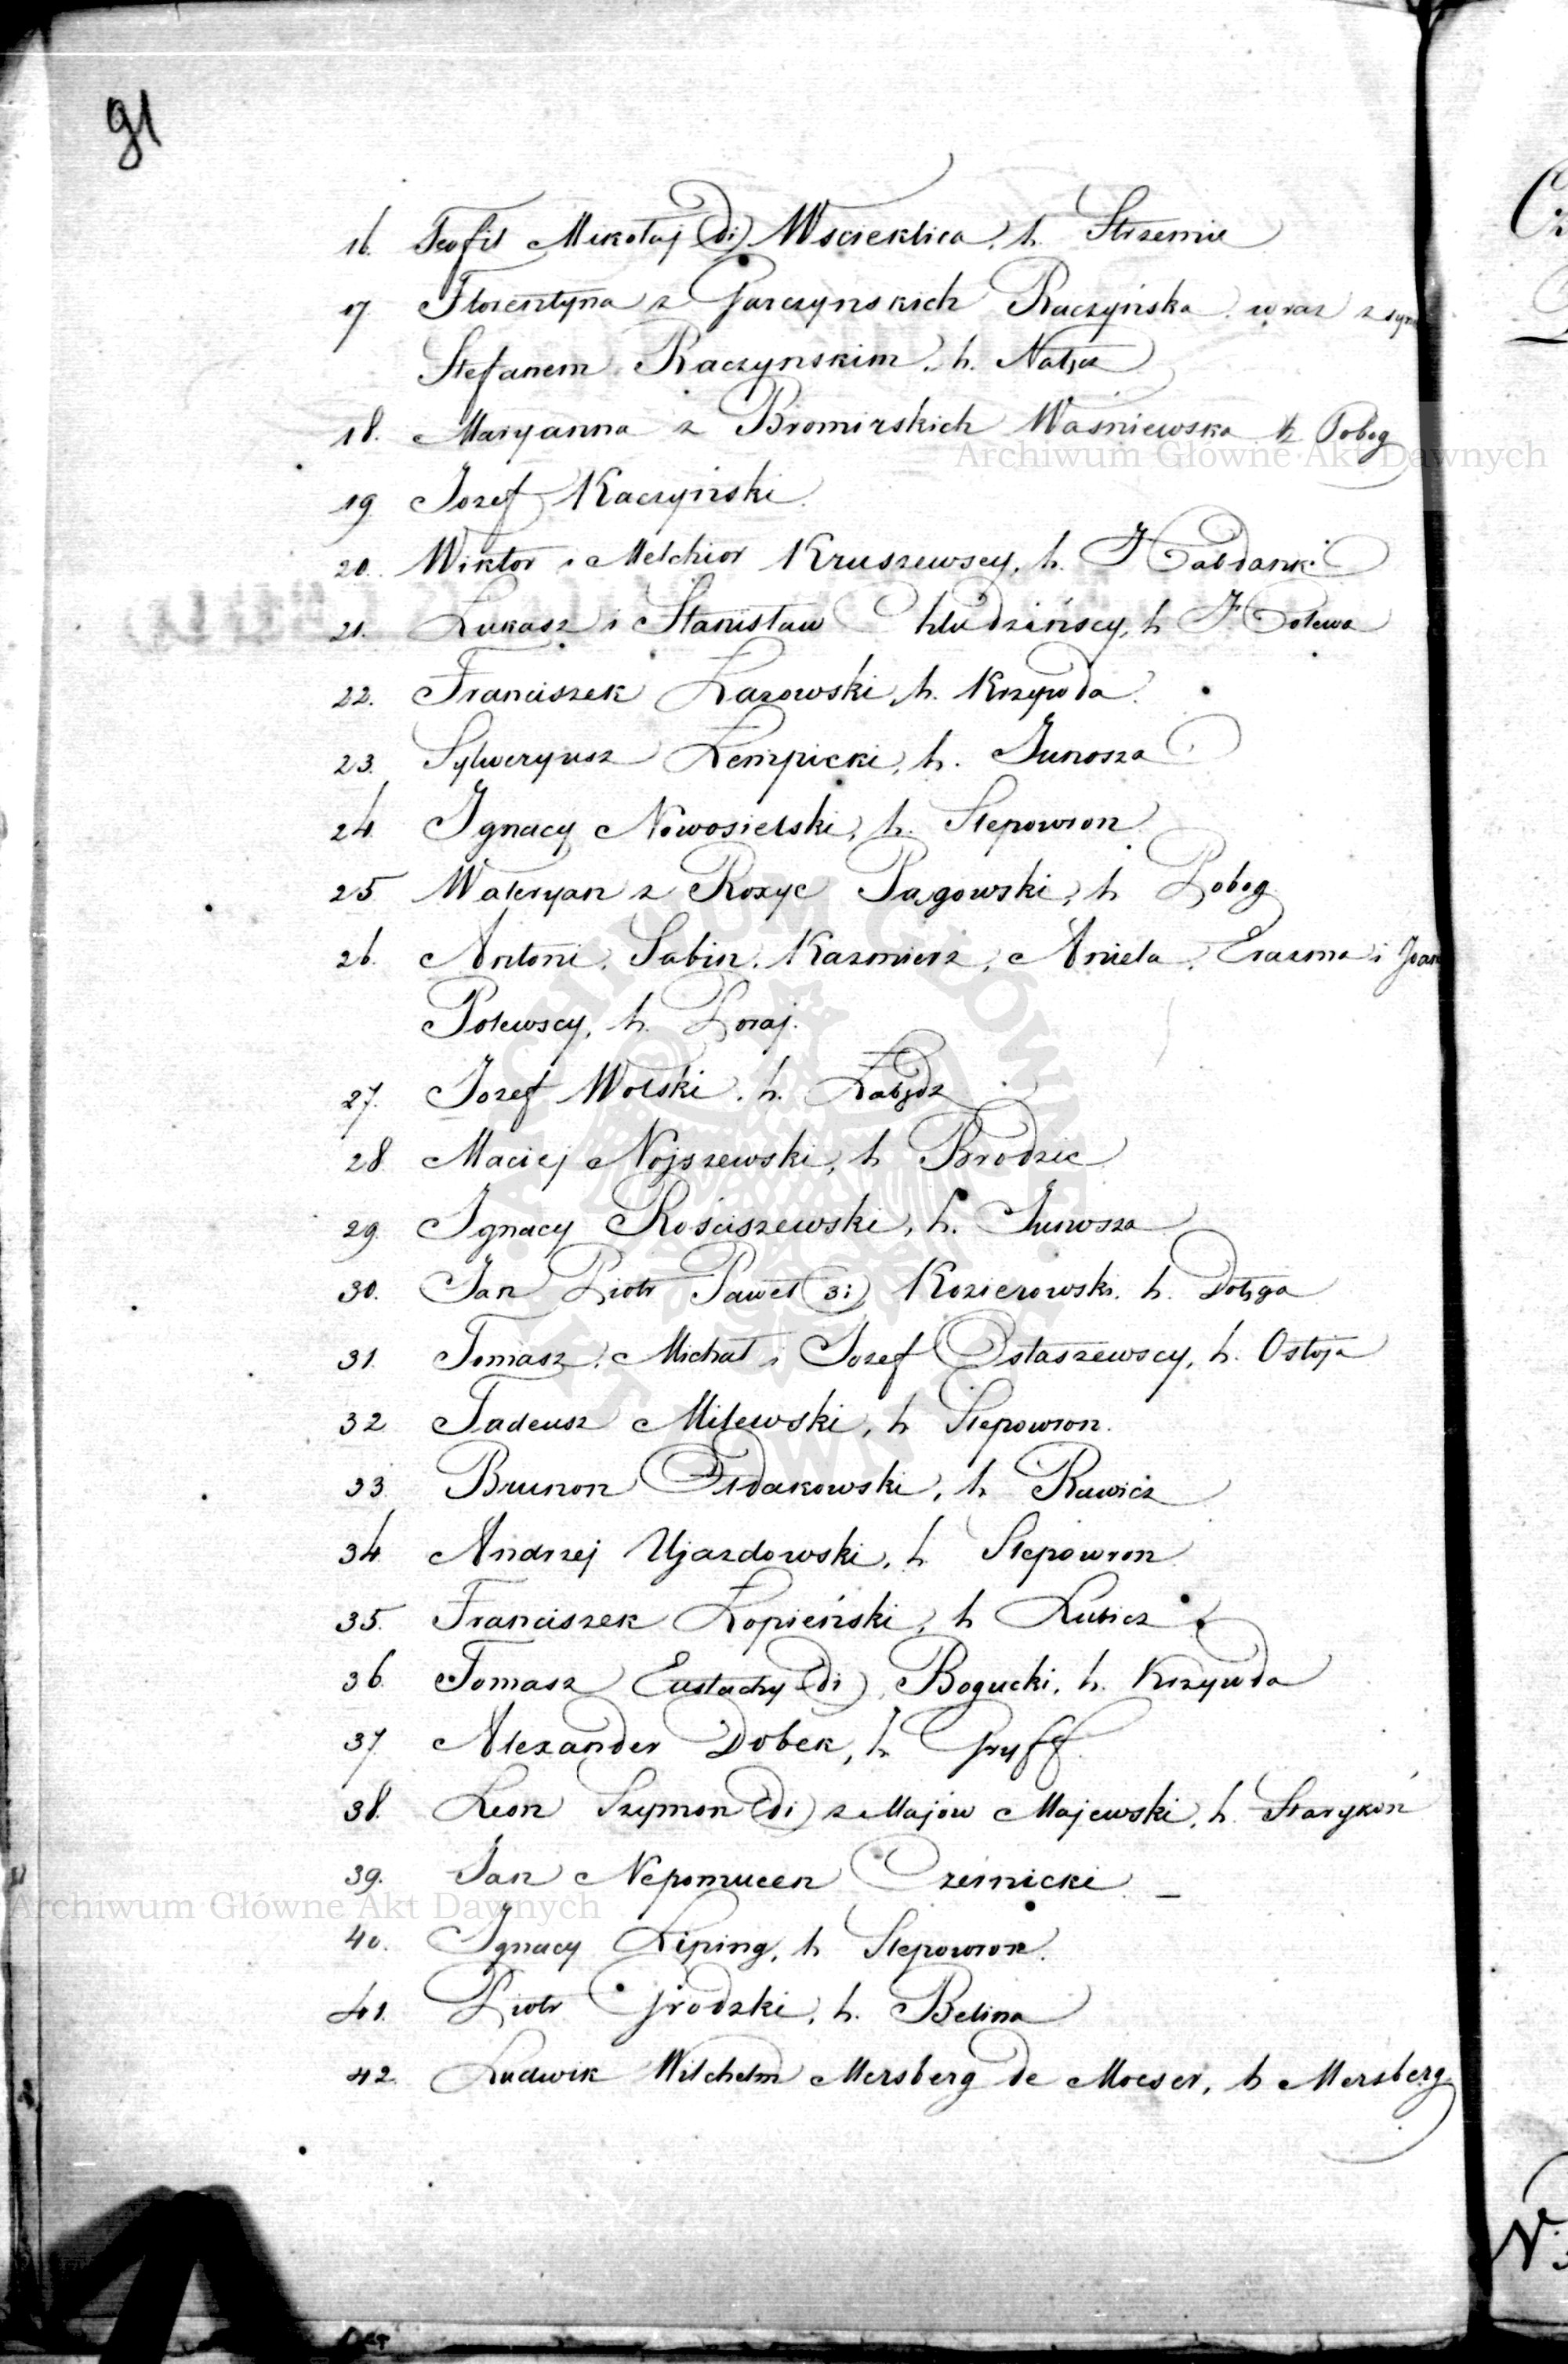 91
16. Teofil Mikołaj (2i) Wscieklica, h. Strzemie
17 Florentyna z Garczynskich Raczyńska wraz z syn
Stefanem Raczynskim, h. Nałęcz
18. Maryanna z Bromirskich Waśniewska h Pobog
Archiwum Główne Akt Dawnych
19 Jozef Kaczyński.
20. Wiktor i Melchior Kruszewscy, h. Habdank
21. Łukasz i Stanisław Chludzińscy, h Cholewa
22. Franciszek Łazowski, h. Krzywda.
23. Sylweryusz Łempicki, h. Junosza
24. Ignacy Nowosielski, h. Slepowron
25 Waleryan z Rożyc Pągowski, h Pobog
26. Antoni, Sabin, Kazmierz, Aniela, Erazma i Joan
Polewscy, h. Poraj.
27. Jozef Wolski, h. Łabędz
28 Maciej Nojszewski, h Brodzic
29. Ignacy Rościszewski, h. Junosza
30. Jan Piotr Paweł (3i) Kozierowski, h. Dołęga
31. Tomasz, Michał i Jozef Ostaszewscy, h. Ostoja
32 Tadeusz Milewski, h Slepowron.
33. Brunon Osdakowski, h Rawicz
34. Andrzej Ujazdowski, h Slepowron
35. Franciszek Łopieński, h Lubicz
36. Tomasz Eustachy (2i) Bogucki, h. Krzywda
37 Alexander Dobek, h Gryff.
38. Leon Szymon (2i) z Majów Majewski, h. Starykoń
39. Jan Nepomucen Cześnicki –
Archiwum Główne Akt Dawnych
40. Ignacy Keping, h Slepowron.
41. Piotr Grodzki, h. Belina
42. Ludwik Wilchelm Mersberg de Moeser, h Mersberg